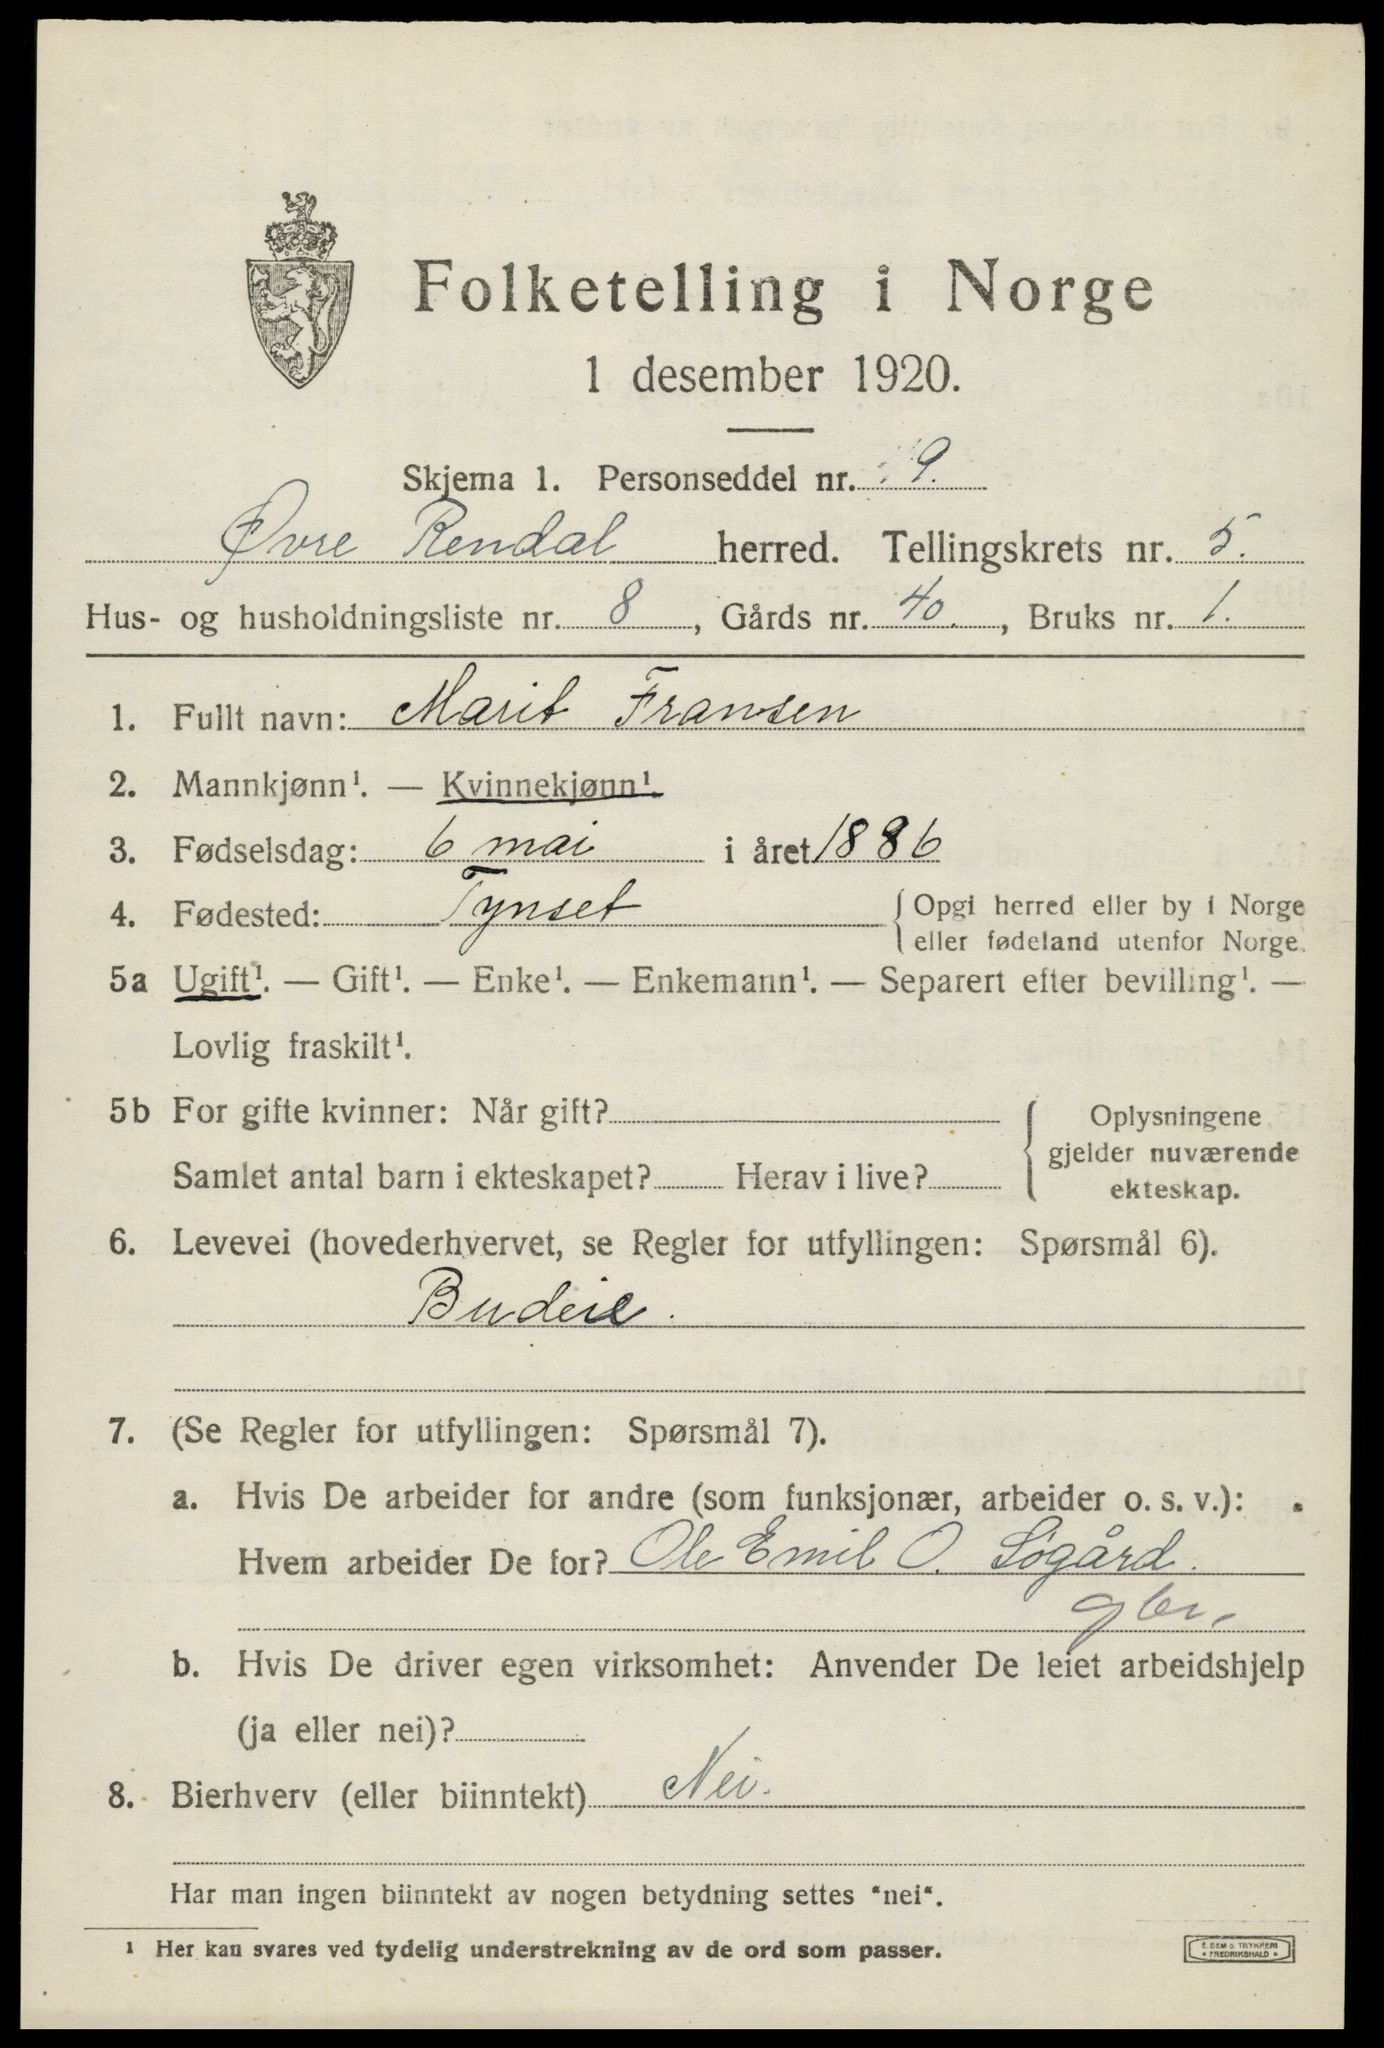 Folketelling i Norge
1 desember 1920.
Skjema 1. Personseddel nr. 9.
Øvre Rendal herred. Tellingskrets nr. 5.
Hus- og husholdningsliste nr. 8, Gårds nr. 40., Bruks nr. 1.
1. Fullt navn: Marit Fransen
2. Mannkjønn¹. — Kvinnekjønn¹.
3. Fødselsdag: 6 mai i året 1886
4. Fødested: Tynset { Opgi herred eller by i Norge
eller fødeland utenfor Norge.
5a Ugift¹. — Gift¹. — Enke¹. — Enkemann¹. — Separert efter bevilling¹. —
Lovlig fraskilt¹.
5b For gifte kvinner: Når gift?
Samlet antal barn i ekteskapet? Herav i live?
Oplysningene
gjelder nuværende
ekteskap.
6. Levevei (hovederhvervet, se Regler for utfyllingen: Spørsmål 6).
Budeie.
7. (Se Regler for utfyllingen: Spørsmål 7).
a. Hvis De arbeider for andre (som funksjonær, arbeider o. s. v.):
Hvem arbeider De for? Ole Emil O. Søgård.
gbr.
b. Hvis De driver egen virksomhet: Anvender De leiet arbeidshjelp
(ja eller nei)?
8. Bierhverv (eller biinntekt) Nei.
Har man ingen biinntekt av nogen betydning settes "nei".
¹ Her kan svares ved tydelig understrekning av de ord som passer.
E. SEM S TRYKKERI
FREDRIKSHALD